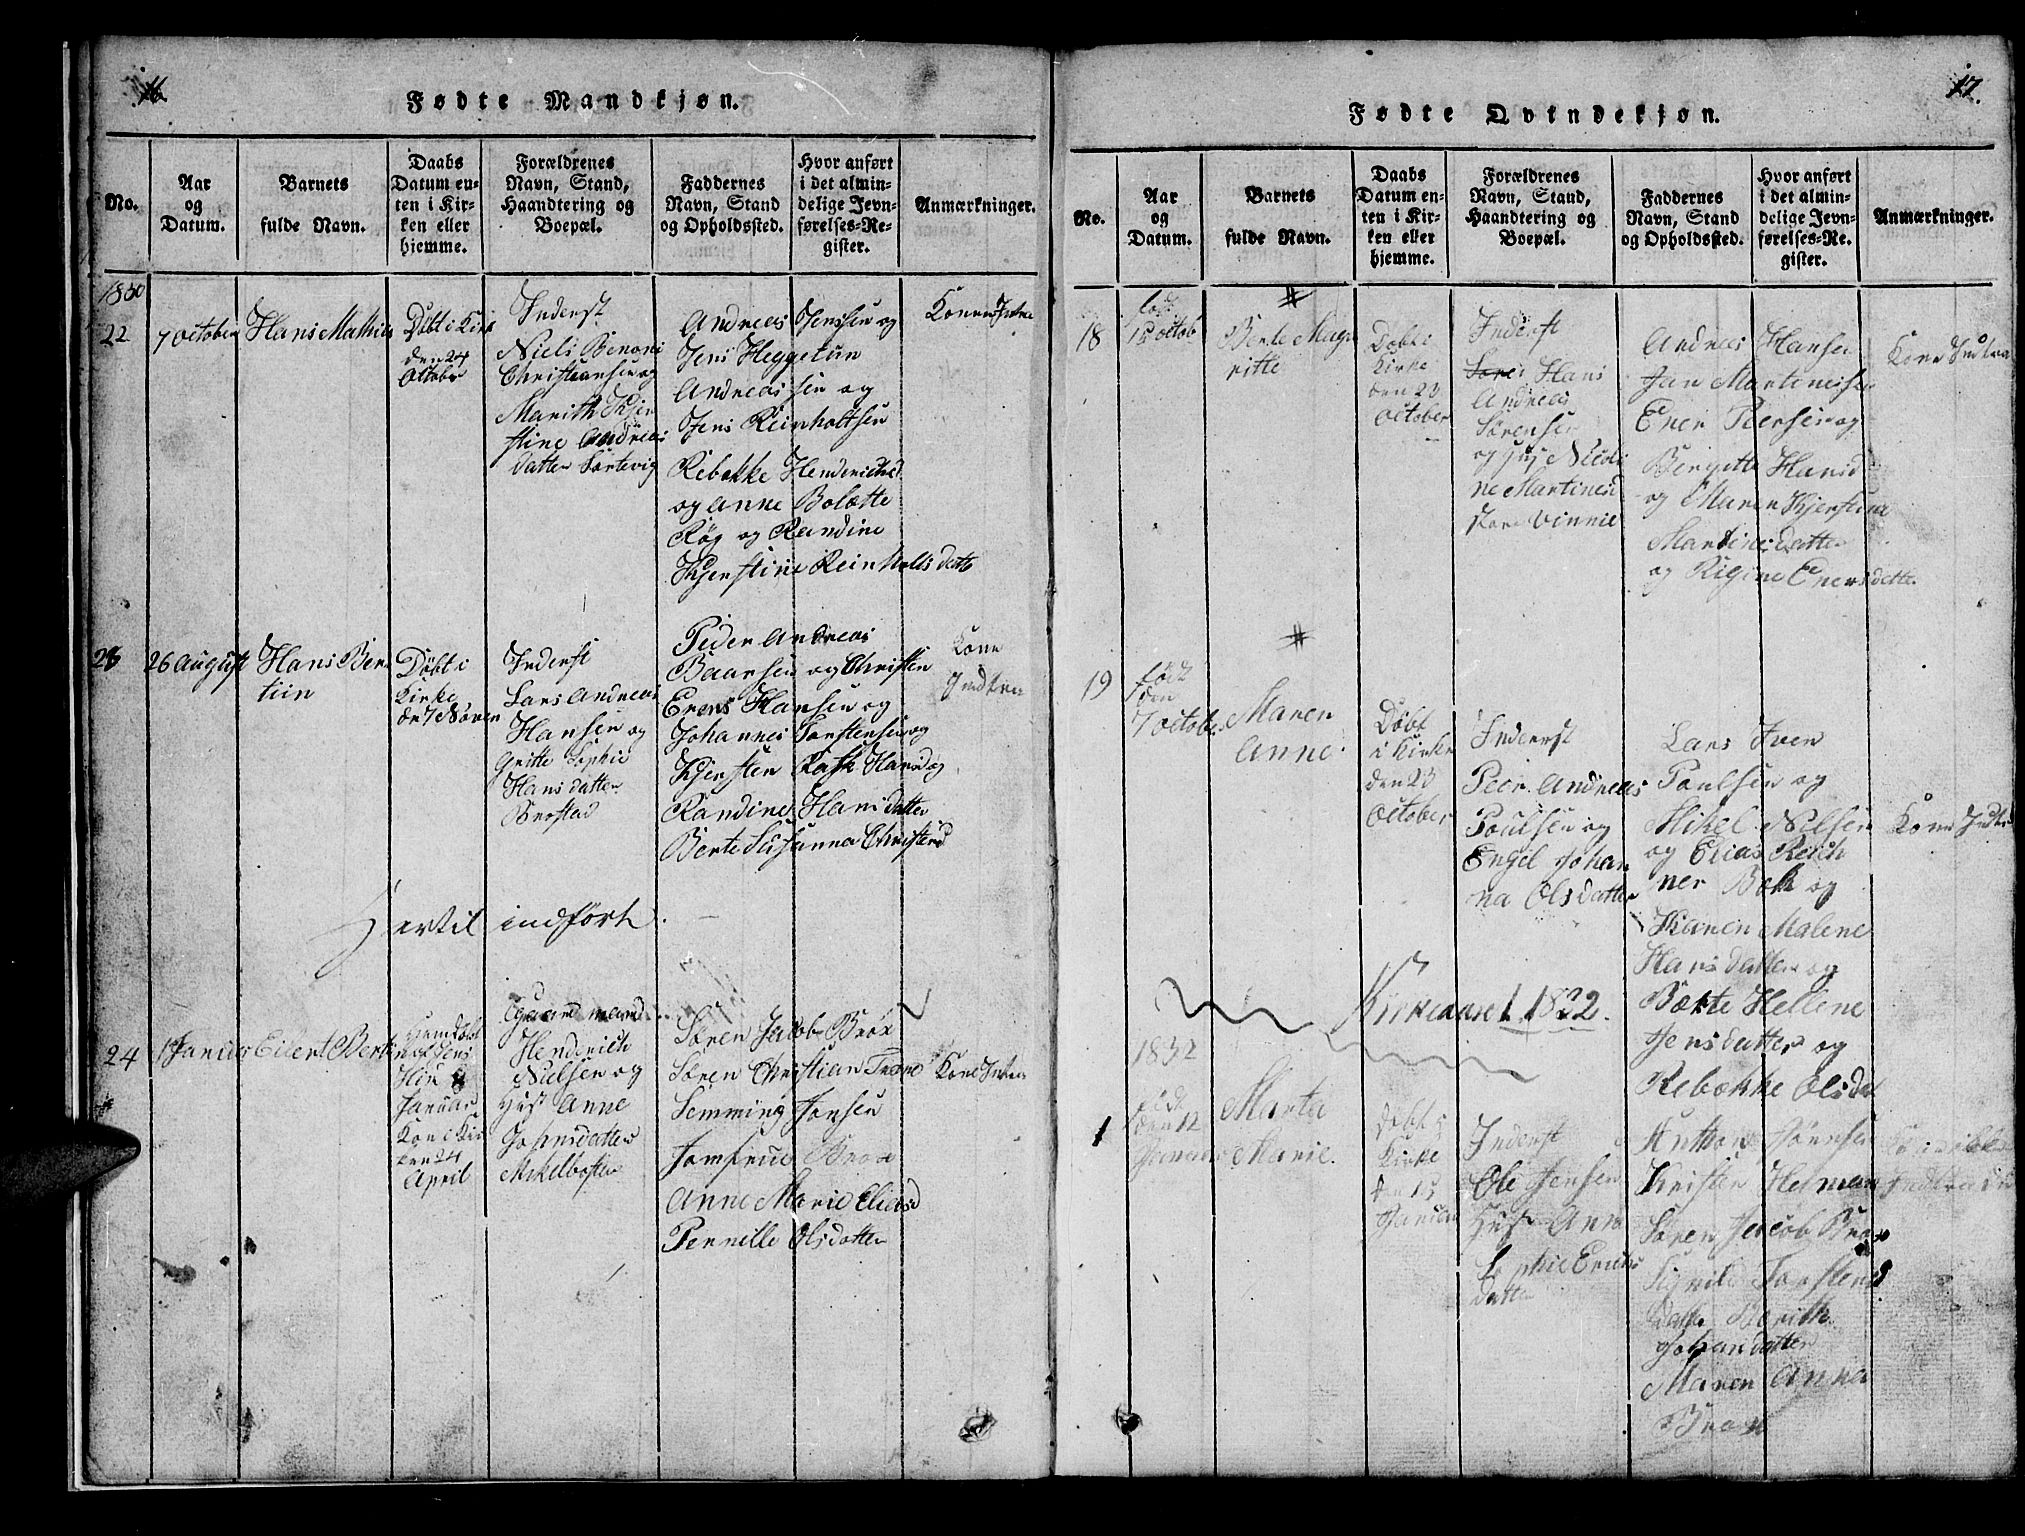 16
Fødte Mandkjøn.
No.
Aar
og
Datum.
Barnets
fulde Navn.
Daabs
Datum en-
ten i Kir-
ken eller
hjemme.
Forældrenes
Navn, Stand,
Haandtering og
Boepæl.
Faddernes
Navn, Stand
og Opholdssted.
Hvor anført
i det almin-
delige Jevn-
førelses-Re-
gister.
Anmærkninger.
1830
22
7 October
Hans Mathias
Døbt i Kirk
den 24
October
Inderst
Niels Benoni
Christiansen og
Marith Kjer
stine Andreas
datter Sørtevig
Andreas Jenssen og
Jens Heggetun
Andreassen og
Jens Reinholtsen
Rebekke Henderichsd
og Anne Bolætte
Røg og Randine
Kjerstine Reinholdsdatte
23
26 August
Hans Ber
tiin
Døbt i
Kirke
Inderst
Lars Andreas
Hansen og
Gritte Sophie
Hansdatter
Peder Andreas
Baarsen og Christen
Erens Hansen og
Johannes Torstensen og
Kjersten Rask Hansd og
Randine Hansdatter
Berte Susanna Christensd
Kone
Indtra
Hertil indført.
24
Eilert Bertin
Januar
Kone Kir
den 24
April
Gaardmand
Henderich
Nielsen og
Hust Anne
Johnsdatter
Mikelbosten
Søren Jacob Brox
Søren Christian Trane
Lemming Jonsen
Jomfrue Brox
Anne Marie Eliasd
Pernille Olsdatter
Kone Intra
17.
Fødte Qvindekjøn.
No.
Aar
og
Datum.
Barnets
fulde Navn.
Daabs
Datum en-
ten i Kir-
ken eller
hjemme.
Forældrenes
Navn, Stand,
Haandtering og
Boepæl.
Faddernes
Navn, Stand
og Opholdssted.
Hvor anført
i det almin-
delige Jevn-
førelses-Re-
gister.
Anmærkninger.
18
fød
October
#
Berte Magr
ritte
Døbt i
Kirke
den 23
October
Inderst
Hans
Andreas
Sørensen
og Hus Nicoli
ne Martinesd
store Vinnie
Andreas Hansen
Jan Martinessen
Ener Peersen og
Bergitte Hansd
og Maren Kjerstine
Martinesdatter
og Rigine Enersdatte
Kone Indtra
#
19
født
den
7 October
Maren
Anne
Døbt
i Kirke
den 23
October
Inderst
Peer Andreas
Poulsen og
Engel Johan
na Olsdatter
Lars Iver
Poulsen og
Mikel Nilsen
og Elias Reich
ner Bak og
Karen Malene
Hansdatter og
Berte Hellene
Jensdatter og
Rebekke Olsdat
Kone Indtr
Kirkeaaret 1832.
1832
1
født
den 12
Januar
Marta
Marie
døbt i
Kirke
den 15
Januar
Inderst
Ole Jensen
Hust Anne
Sophie Ericks
datter
Anthon Jønsen
Kristen Helman
Søren Jacob Brox
Sigrild Torstens
datte Berith
Johansdatter
Maren Anna
Brox